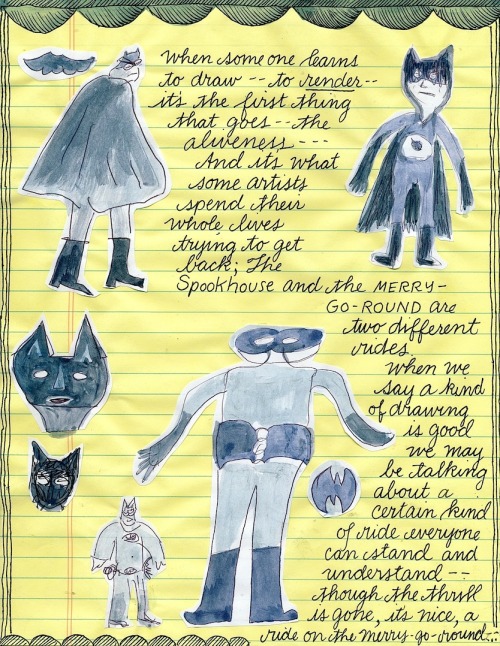 When some one learns
to draw -- to render --
it's the first thing
that goes -- the
aliveness ---
And it's what
some artists
spend their
whole lives
trying to get
back; The
Spookhouse and the MERRY-
GO-ROUND are
two different
rides.
When we
say a kind
of drawing
is good
we may
be talking
about a
certain kind
of ride everyone
can stand and
understand --
though the thrill
is gone, it's nice, a
ride on the merry-go-round...